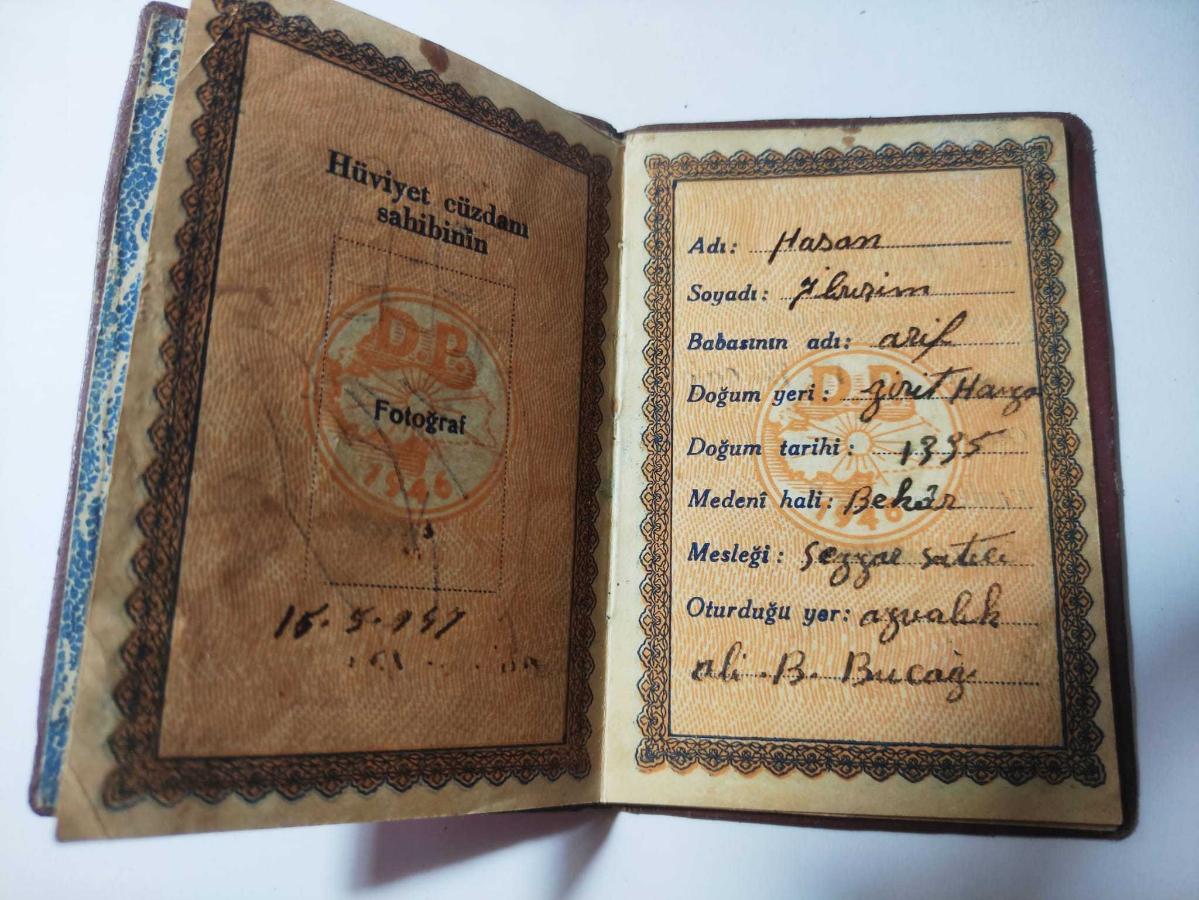 Hüviyet cüzdanı
sahibinin
D.P.
Fotoğraf
1946
Adı: Hasan
Soyadı:
Babasının adı: arif
Doğum yeri: Jirit Hanya
D.P.
Doğum tarihi: 1335
Medenî hali: Bekâr
1946
Mesleği: Seyyar satıcı
Oturduğu yer: ayvalık
ali .B. Bucağı